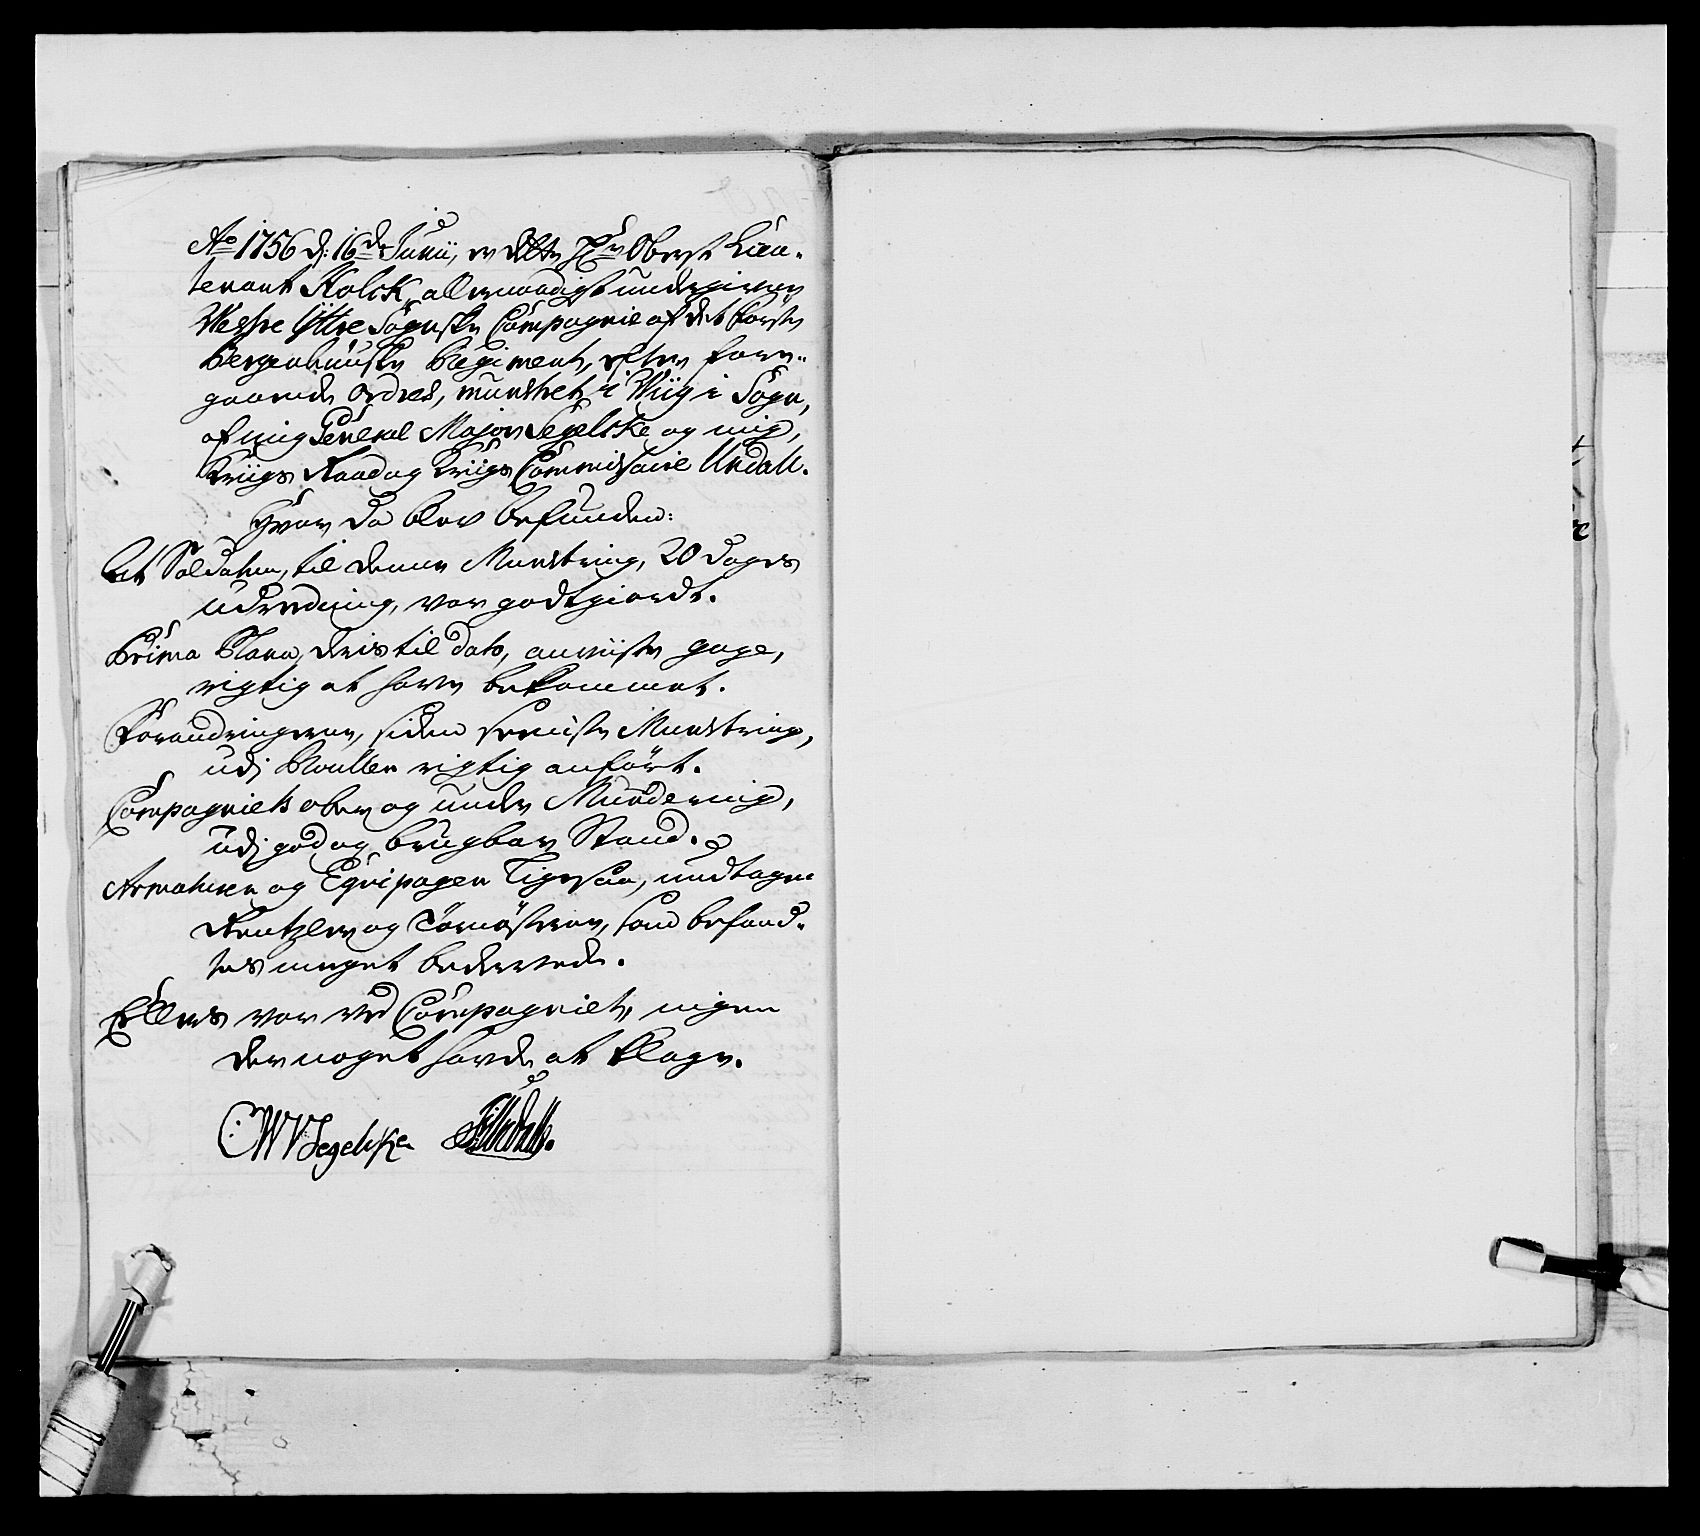 Ao 1756 d: 16de Junii, er dette Hr Oberst Lieu-
tenant Holck allernaadigst undergivne
Westre Yttre Sognske Compagnie af det første
Bergenhuuske Regiment, efter fore-
gaaende ordres, mynstret i Wiig i Sogn,
af mig General Major Segelcke og mig,
Kriigs Raad og Kriigs Commissaire Undall.
Hvor da blev befunden:
At Soldaten, til denne Mynstring, 20 dages
udredning, var godtgiordt.
Prima Plana, deris til dato, anviiste gage,
rigtig at have bekommet.
Forandringerne, siden seeniste Mynstring,
udj Roullen rigtig anført.
Compagniets ober og under Mundering,
udj god og brugbar Stand.
Armaturen og Equipagen Ligesaa, undtagen
Rentzler og Tornøsterne, som befand-
tes meget bedervede.
Ellers var ved Compagniet, ingen
der noget havde at klage.
CWVSegelcke Undall.